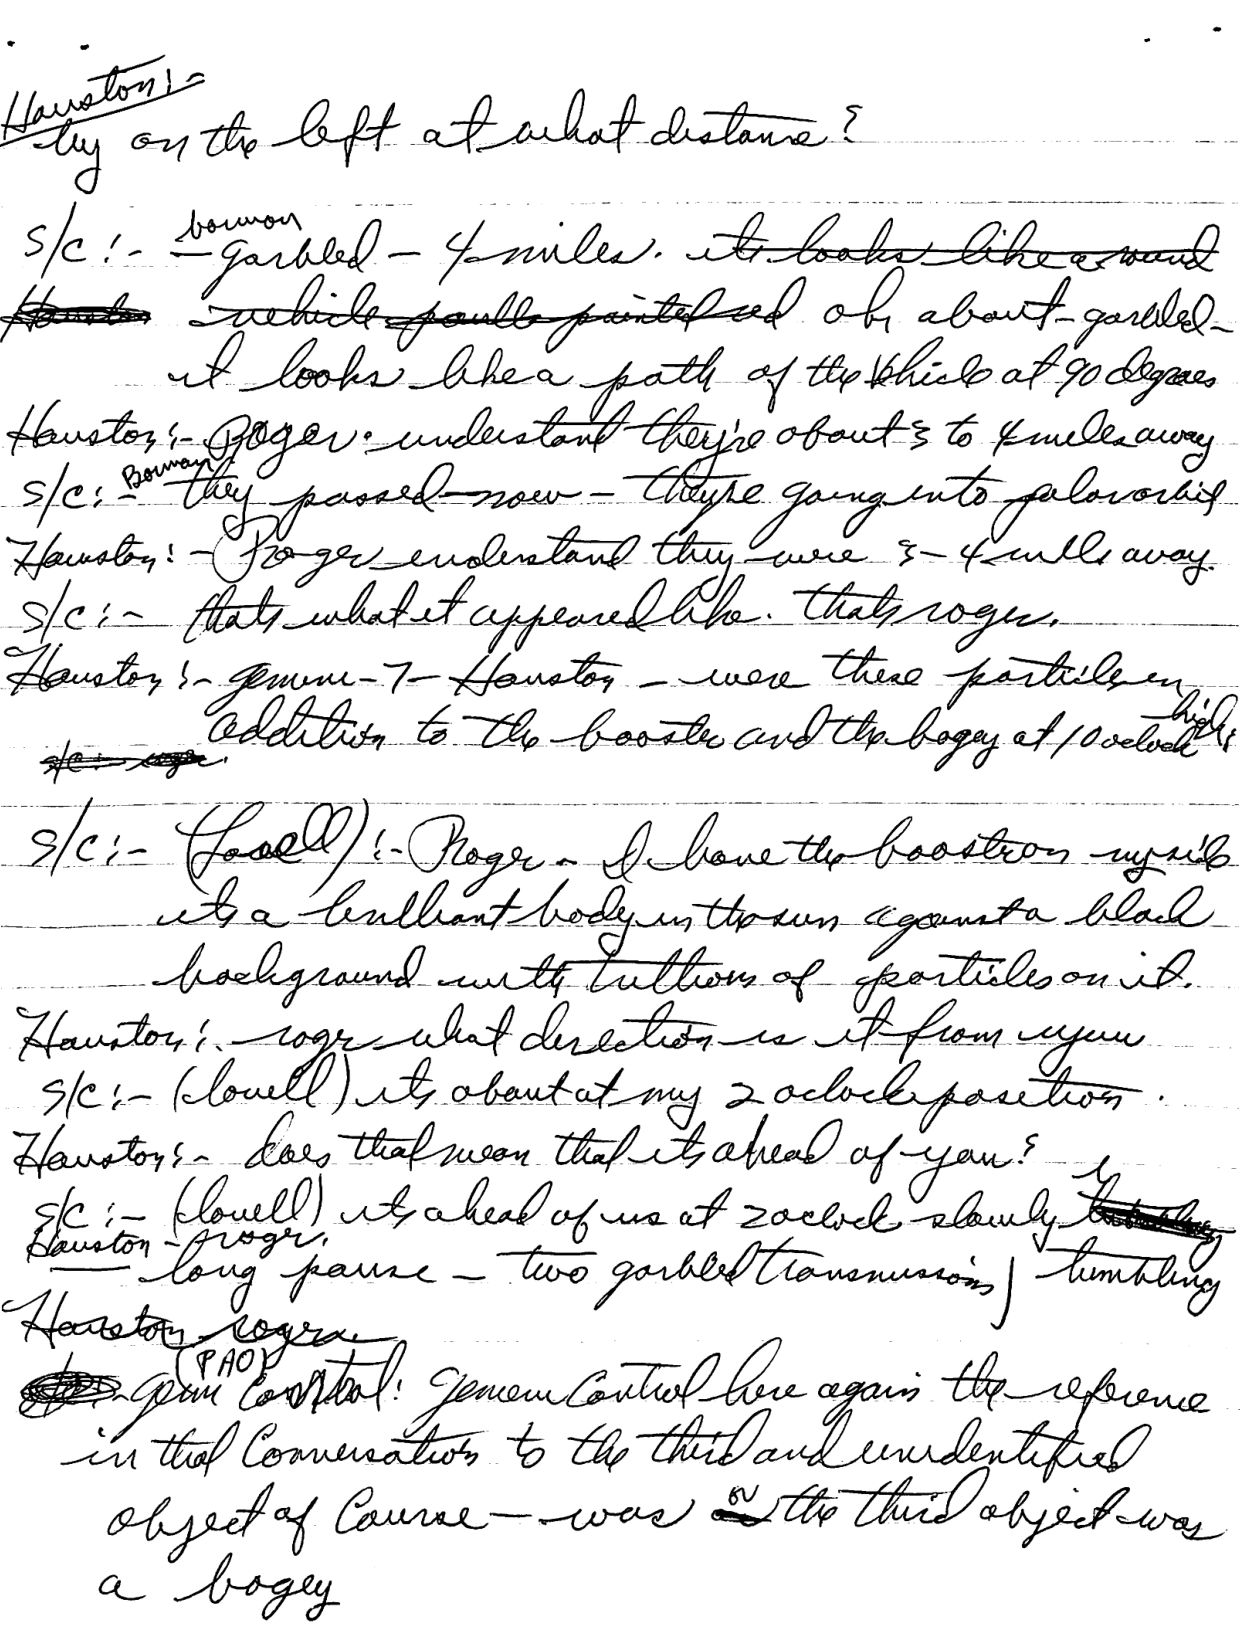 Houston:-
by on the left at what distance?
s/c:- borman - garbled - 4 miles. its looks like a round
Houston vehicle painted red oh, about - garbled -
it looks like a path of the vehicle at 90 degrees
Houston:- Roger. understand they're about 3 to 4 miles away
s/c:- Borman they passed now - they're going into polar orbit
Houston:- Roger understand they were 3-4 miles away.
s/c:- thats what it appeared like. thats roger.
Houston:- gemini-7- Houston - were these particles in
addition to the booster and the bogey at 10 oclock high?
s/c:- roger.
s/c:- (Lovell):- Roger - I have the booster on my side
its a brilliant body in the sun against a black
background with trillions of particles on it.
Houston:- roger what direction is it from you
s/c:- (lovell) its about at my 2 oclock position.
Houston:- does that mean that its ahead of you?
s/c:- (lovell) its ahead of us at 2 oclock slowly
Houston - roger.
long pause - two garbled transmissions) tumbling
Houston roger
(PAO)
gemi Control: gemini Control here again the reference
in that Conversation to the third and unidentified
object of Course - was or the third object was
a bogey